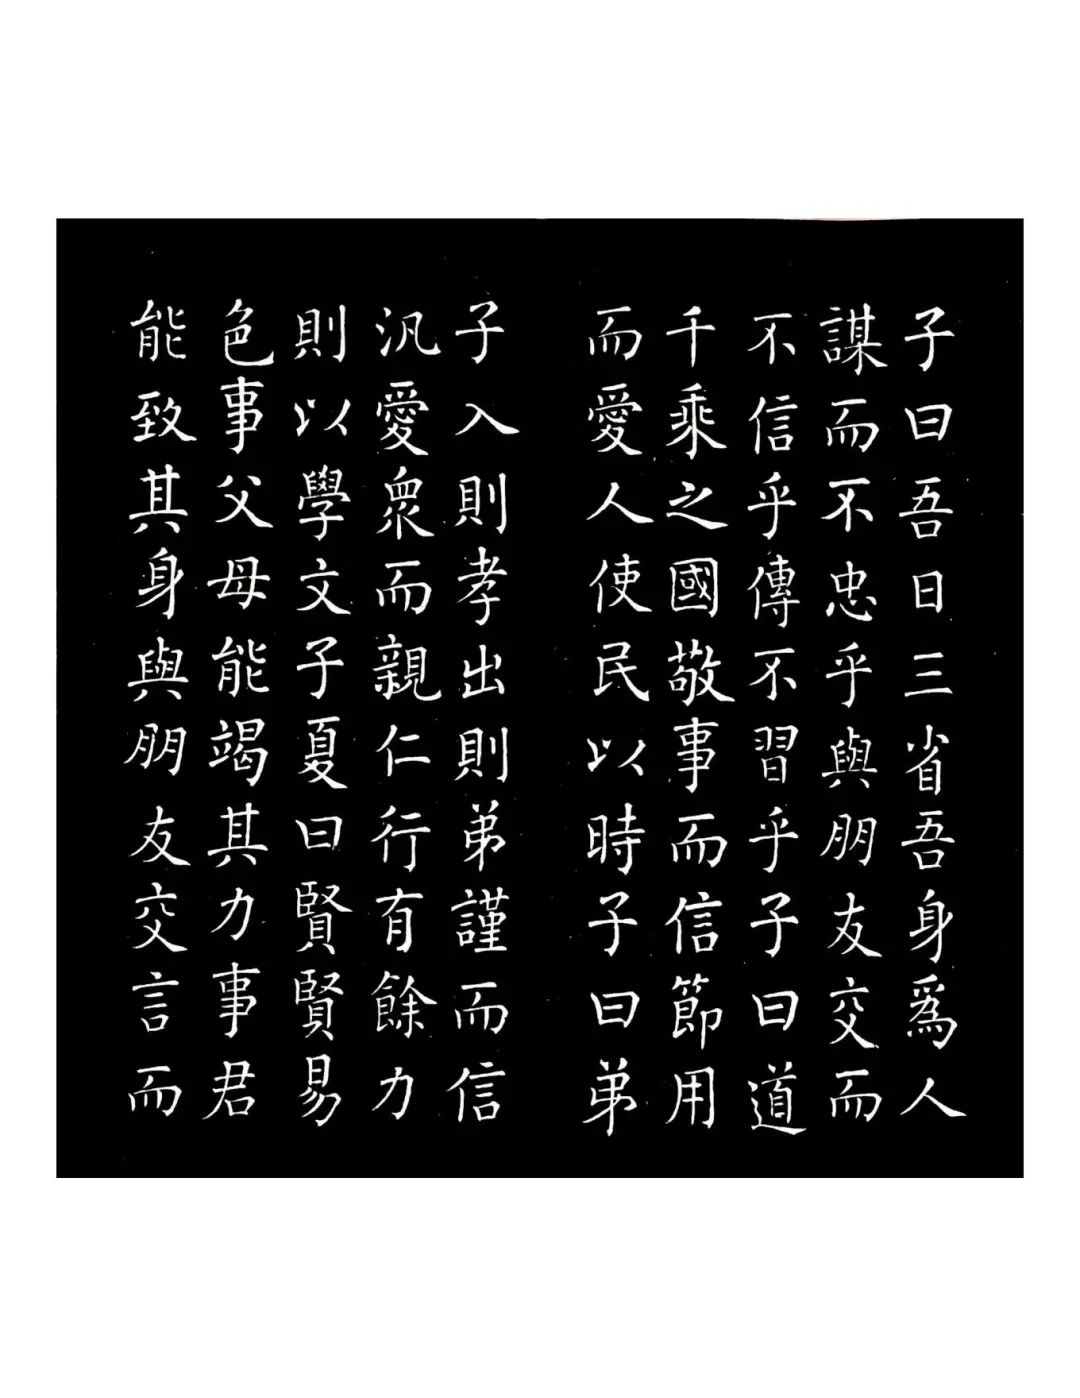 子曰吾日三省吾身爲人
謀而不忠乎與朋友交而
不信乎傳不習乎子曰道
千乘之國敬事而信節用
而愛人使民以時子曰弟
子入則孝出則弟謹而信
汎愛衆而親仁行有餘力
則以學文子夏曰賢賢易
色事父母能竭其力事君
能致其身與朋友交言而